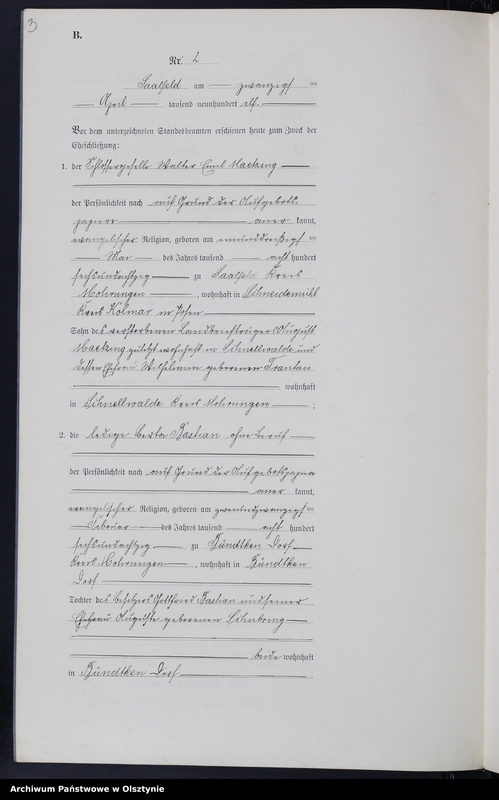 3
B.
Nr. 2
Saalfeld am zwanzigsten
April tausend neunhundert elf.
Vor dem unterzeichneten Standesbeamten erschienen heute zum Zweck der
Eheschließung:
1. der Schlossergeselle Walter Emil Macking
der Persönlichkeit nach auf Grund der Aufgebots-
papiere aner kannt,
evangelischer Religion, geboren am einunddreißigsten
Mai des Jahres tausend acht hundert
sechsundachtzig zu Saalfeld Kreis
Mohrungen, wohnhaft in Schneidemühl
Kreis Kolmar in Posen
Sohn des verstorbenen Landbriefträgers August
Macking zuletzt wohnhaft in Schnellwalde und
dessen Ehefrau Wilhelmine geborenen Trantau
wohnhaft
in Schnellwalde Kreis Mohrungen;
2. die ledige Berta Bastian ohne Beruf
der Persönlichkeit nach auf Grund der Aufgebotspapiere
aner kannt,
evangelischer Religion, geboren am zweiundzwanzigsten
Februar des Jahres tausend acht hundert
sechsundachtzig zu Bündtken Dorf
Kreis Mohrungen, wohnhaft in Bündtken
Dorf
Tochter des Besitzers Gottfried Bastian und seiner
Ehefrau Auguste geborenen
beide wohnhaft
in Bündtken Dorf.
Archiwum Państwowe w Olsztynie